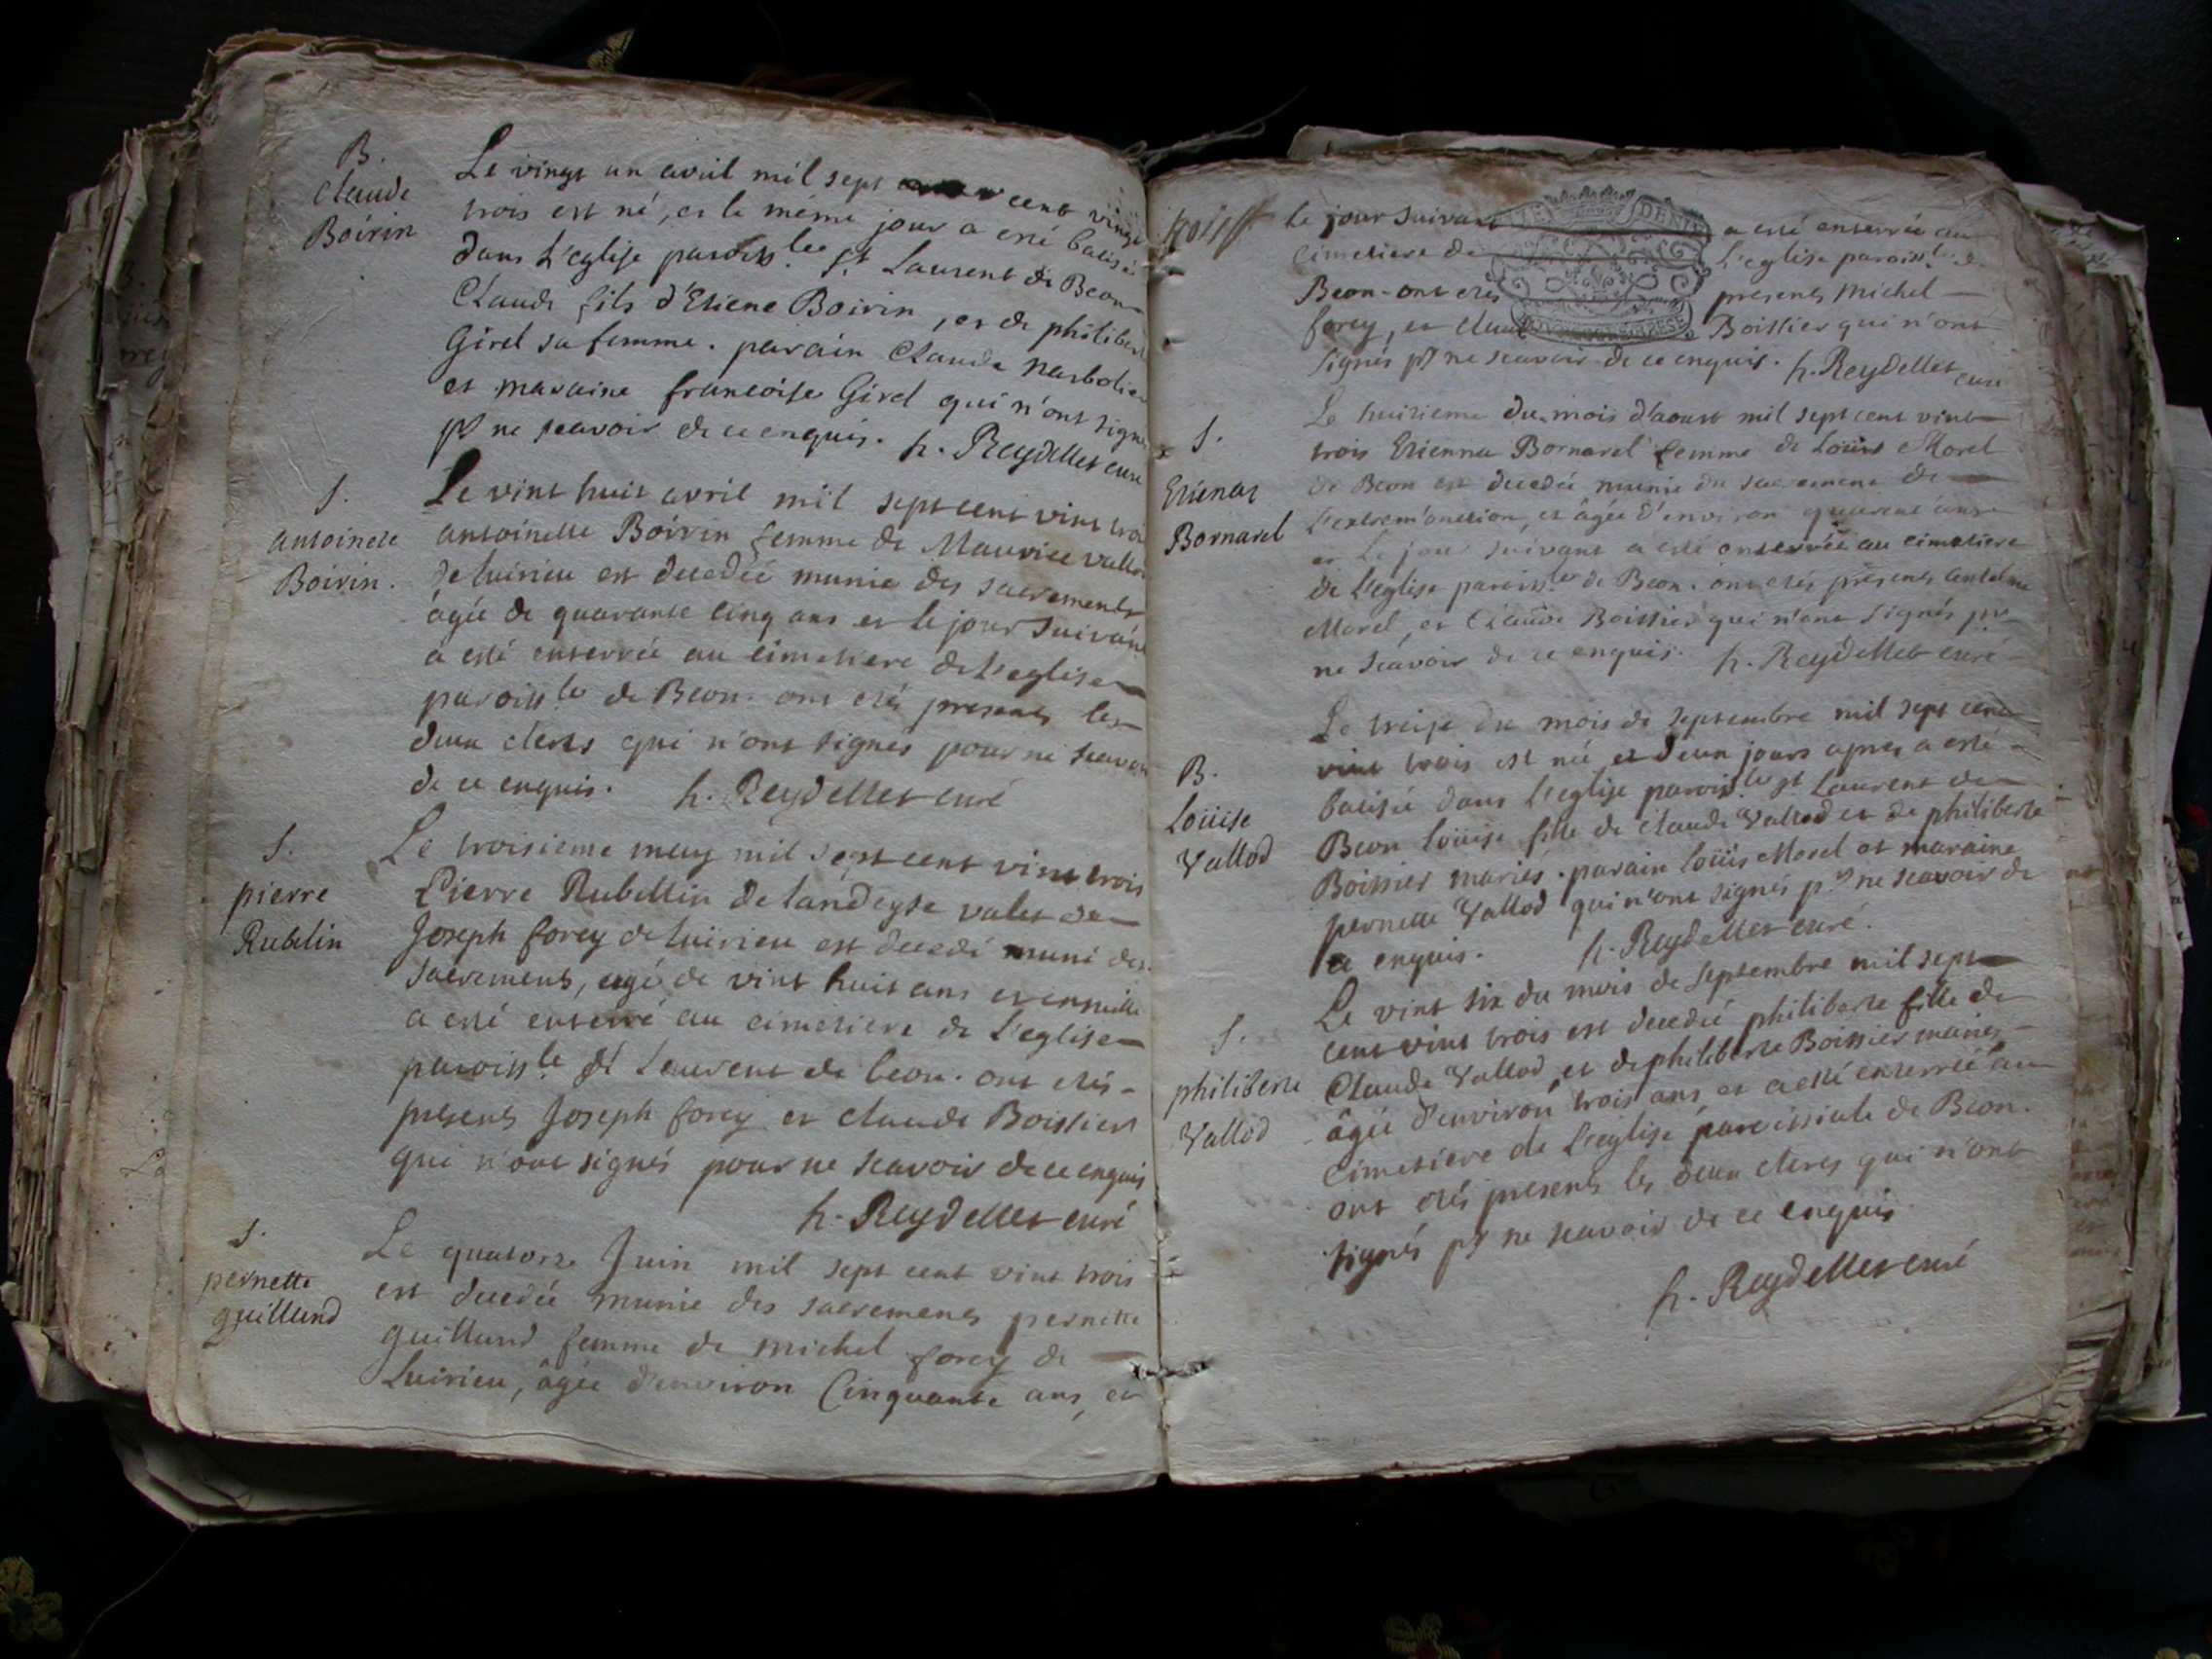 B.
Claude
Boirin
Le vingt un avril mil sept cent vingt
trois est né, et le méme jour a esté batisé
dans L'eglise paroiss.le St Laurent de Beon
Claude fils d'Etiene Boirin, et de philibert
Girel sa femme. parain Claude narbolie
et maraine francoise Girel qui n'ont signe
pr ne scavoir de ce enquis. h. Reydellet curé
S.
antoinete
Boirin.
Le vint huit avril mil sept cent vint troi
antoinette Boirin femme de Maurice vallo
de luirieu est decedée munie des sacrements
âgée de quarante cinq ans et le jour suivant
a esté enterrée au cimetiere de L'eglise
paroiss.le de Beon. ont etés presents les
deux clercs qui n'ont signés pour ne scavoi
de ce enquis. h. Reydellet curé
S.
pierre
Rubelin
Le troisieme may mil sept cent vint trois
Pierre Rubellin de landeyse valet de
Joseph forey de luirieu est decedé muni des
sacrements, agé de vint huit ans et ensuitte
a esté enterré au cimetiere de L'eglise
paroiss.le St Laurent de beon. ont etés
presents Joseph forey et claude Boissier
qui n'ont signés pour ne scavoir de ce enquis
h. Reydellet curé
S.
pernette
guilland
Le quatorze Juin mil sept cent vint trois
est decedée munie des sacrements pernette
guilland femme de michel forey de
Luirieu, âgée d'environ Cinquante ans, et
le jour suivant a esté enterrée au
cimetiere de L'eglise paroiss.le de
Beon. ont etés presents Michel
forey, et claude Boissier qui n'ont
signés pr ne scavoir de ce enquis. h. Reydellet curé
S.
Etienne
Bornarel
Le huitieme du mois d'aoust mil sept cent vint
trois Etienna Bornarel femme de Loüis Morel
de Beon est decedée munie du sacrement de
L'extrem'onction, et âgée d'environ quarent ans
et Le jour suivant a esté enterrée au cimetiere
de L'eglise paroiss.le de Beon. ont etés presents Centelme
Morel, et Claude Boissier qui n'ont signés pr
ne scavoir de ce enquis. h. Reydellet curé
B.
Loüise
Vallod
Le treize du mois de septembre mil sept cent
vint trois est née et deux jours apres a esté
batisée dans L'eglise paroiss.le st Laurent de
Beon loüise fille de claude Vallod et de philiberte
Boissier mariés. parain loüis Morel et maraine
pernette Vallod qui n'ont signés pr ne scavoir de
ce enquis. h. Reydellet curé.
S.
philiberte
Vallod
Le vint six du mois de septembre mil sept
cent vint trois est decedée philiberte fille de
Claude Vallod, et de philiberte Boissier mariés
âgée d'environ trois ans et a esté enterrée au
Cimetiere de L'eglise paroissiale de Beon.
ont etés presents les deux clercs qui n'ont
signés pr ne scavoir de ce enquis
h. Reydellet curé